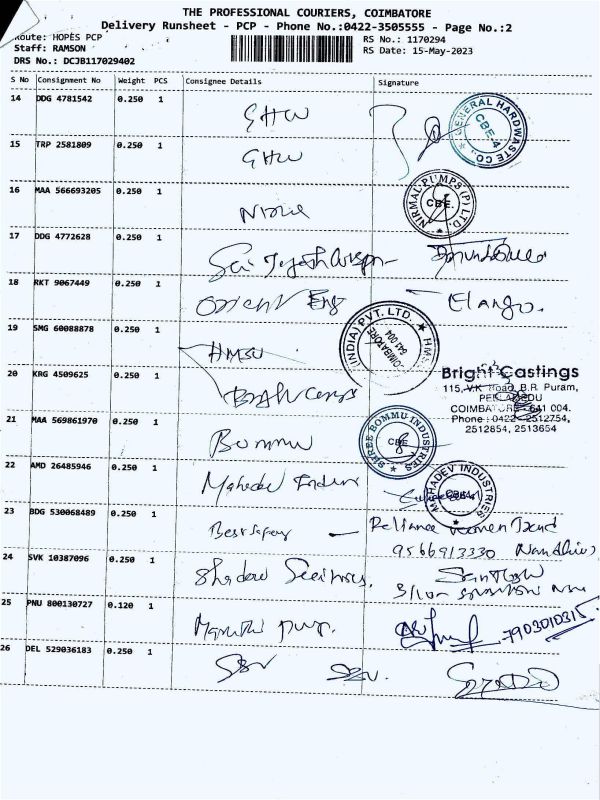 THE PROFESSIONAL COURIERS, COIMBATORE
Delivery Runsheet - PCP - Phone No.:0422-3505555 - Page No.:2
Route: HOPES PCP
Staff: RAMSON
DRS No.: DCJB117029402
RS No.: 1170294
RS Date: 15-May-2023
S No Consignment No Weight PCS Consignee Details Signature
14 DDG 4781542 0.250 1 GHW
GENERAL HARDWARE CO. CBE-4
15 TRP 2581809 0.250 1 GHW
16 MAA 566693205 0.250 1
NIRMAL PUMPS (P) LTD. CBE.
17 DDG 4772628 0.250 1 Sai
18 RKT 9067449 0.250 1 Orient Eng Elango.
19 SMG 60088878 0.250 1
(INDIA) PVT. LTD. COIMBATORE 641 004
20 KRG 4509625 0.250 1
Bright Castings
115, V.K. Road, B.R. Puram,
PEELAMEDU
COIMBATORE - 641 004.
Phone : 0422 - 2512754,
2512854, 2513654
21 MAA 569861970 0.250 1 Bommu
SHREE BOMMU INDUSTRIES CBE
22 AMD 26485946 0.250 1 Mahadev
MAHADEV INDUSTRIES
23 BDG 530068489 0.250 1 Best - Reliance
9566913330
24 SVK 10387096 0.250 1 Shadow
25 PNU 800130727 0.120 1 Maruthi pump. 7903010315
26 DEL 529036183 0.250 1 SBV SBV.